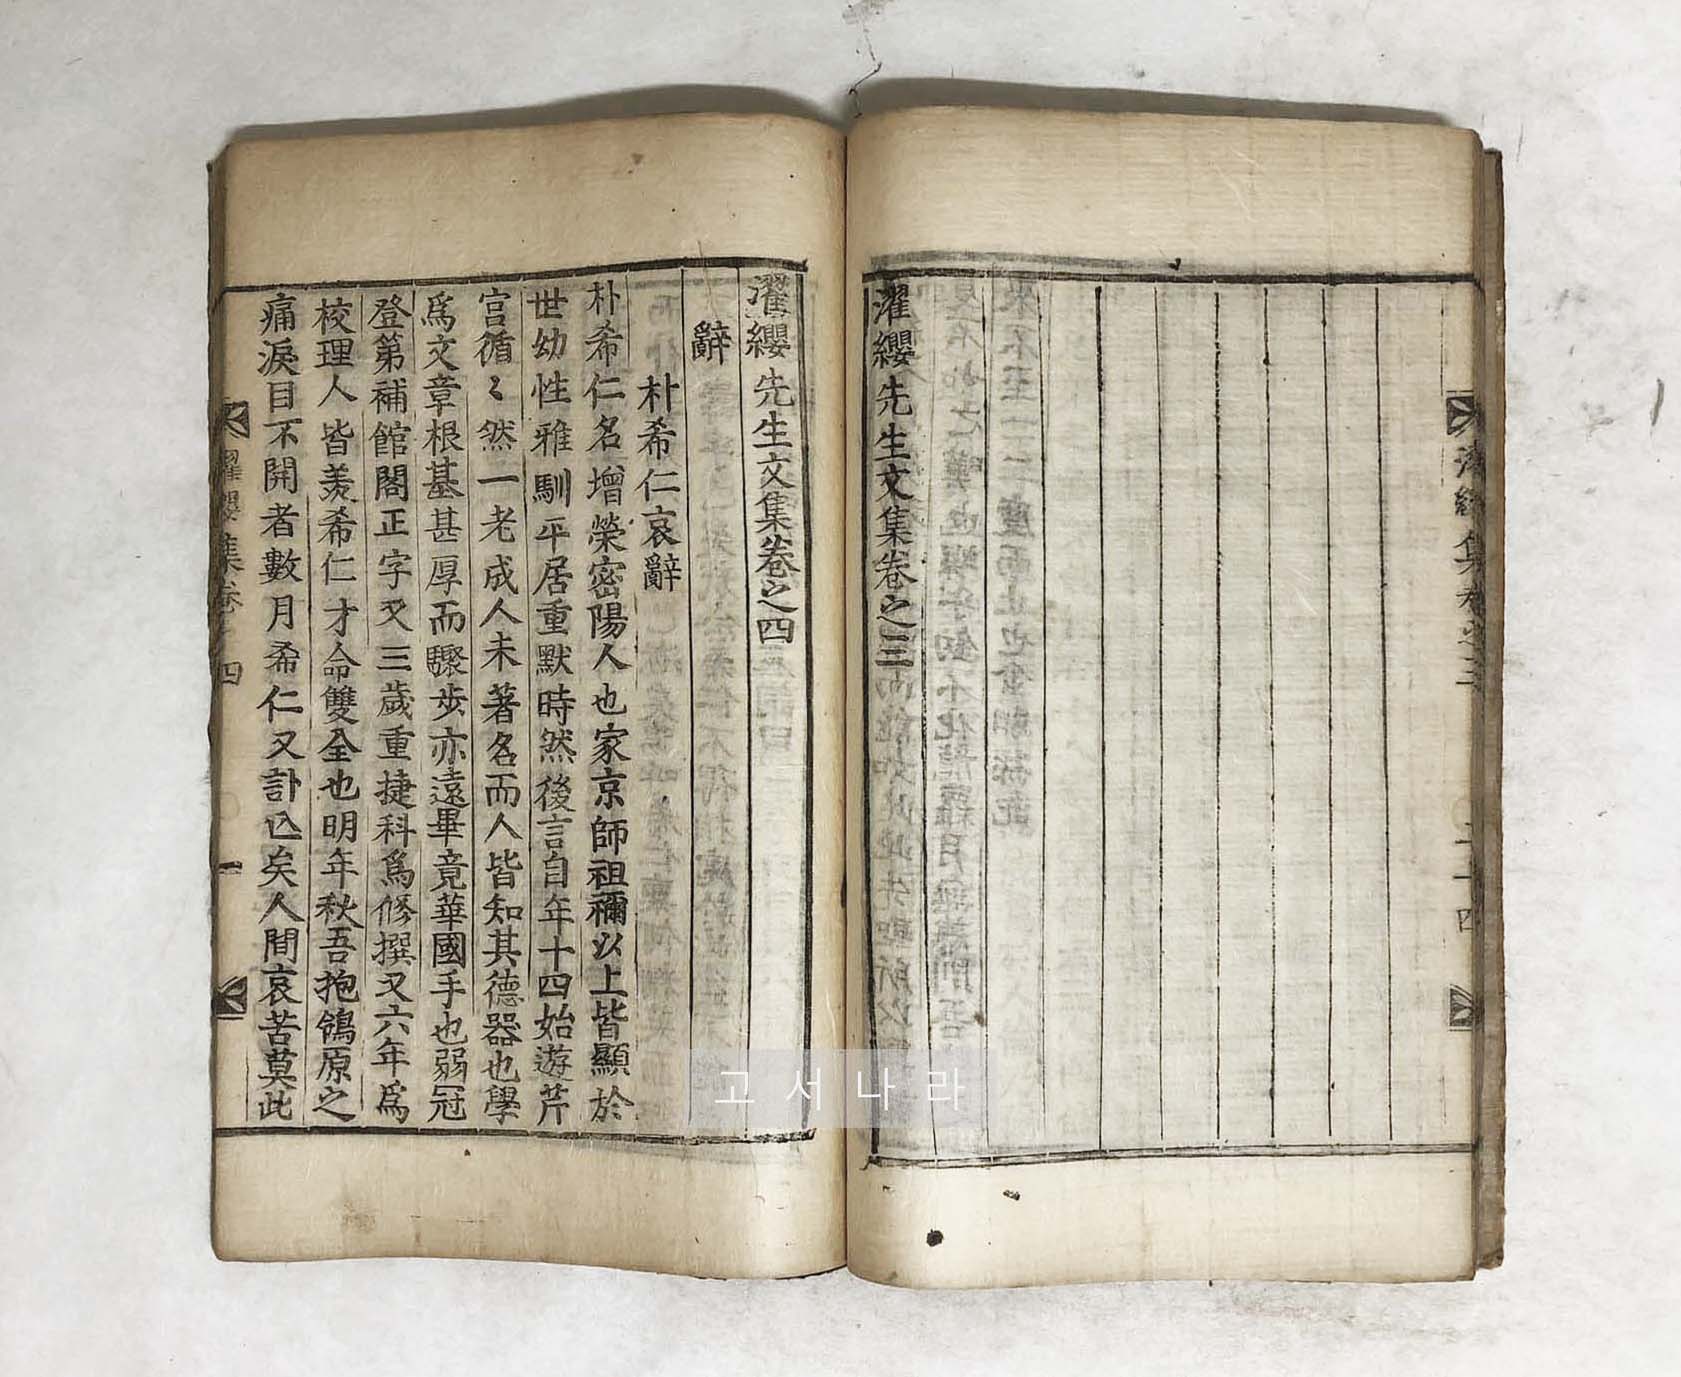 濯纓先生文集卷之三
濯纓先生文集卷之四
辭
朴希仁哀辭
朴希仁名增榮密陽人也家京師祖禰以上皆顯於
世幼性雅馴平居重默時然後言自年十四始遊芹
宮循〻然一老成人未著名而人皆知其德器也學
爲文章根基甚厚而驟步亦遠畢竟華國手也弱冠
登第補館閣正字又三歲重捷科爲修撰又六年爲
校理人皆羨希仁才命雙全也明年秋吾抱鴒原之
痛淚目不開者數月希仁又訃亾矣人間哀苦莫此
濯纓集卷 四
一
고서나라